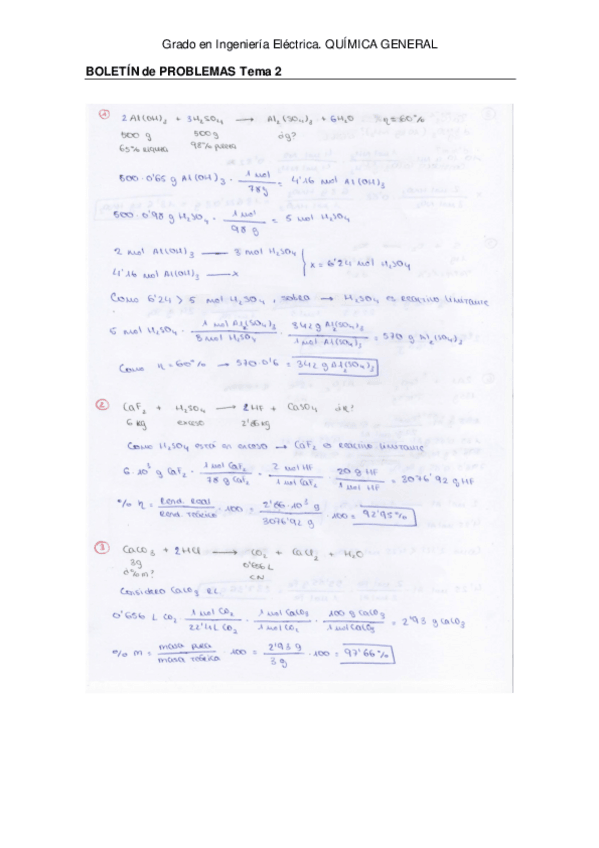 Grado en Ingeniería Eléctrica. QUÍMICA GENERAL
BOLETÍN de PROBLEMAS Tema 2
① 2 Al(OH)₃ + 3H₂SO₄ → Al₂(SO₄)₃ + 6H₂O η = 60%
500 g 500 g ¿g?
65% riqueza 98% pureza
500 · 0'65 g Al(OH)₃ · 1 mol / 78 g = 4'16 mol Al(OH)₃
500 · 0'98 g H₂SO₄ · 1 mol / 98 g = 5 mol H₂SO₄
2 mol Al(OH)₃ → 3 mol H₂SO₄
4'16 mol Al(OH)₃ → x } x = 6'24 mol H₂SO₄
Como 6'24 > 5 mol H₂SO₄, → H₂SO₄ es reactivo limitante
5 mol H₂SO₄ · 1 mol Al₂(SO₄)₃ / 3 mol H₂SO₄ · 342 g Al₂(SO₄)₃ / 1 mol Al₂(SO₄)₃ = 570 g Al₂(SO₄)₃
Como η = 60% → 570 · 0'6 = 342 g Al₂(SO₄)₃
② CaF₂ + H₂SO₄ → 2HF + CaSO₄ ¿η?
6 kg exceso 2'86 kg
Como H₂SO₄ está en exceso → CaF₂ es reactivo limitante
6 · 10³ g CaF₂ · 1 mol CaF₂ / 78 g CaF₂ · 2 mol HF / 1 mol CaF₂ · 20 g HF / 1 mol HF = 3076'92 g HF
% η = Rend. real / Rend. teórico · 100 = 2'86 · 10³ g / 3076'92 g · 100 = 92'95%
③ CaCO₃ + 2HCl → CO₂ + CaCl₂ + H₂O
3g 0'656 L
¿% m? CN
Considero CaCO₃ RL
0'656 L CO₂ · 1 mol CO₂ / 22'4 L CO₂ · 1 mol CaCO₃ / 1 mol CO₂ · 100 g CaCO₃ / 1 mol CaCO₃ = 2'93 g CaCO₃
% m = masa pura / masa teórica · 100 = 2'93 g / 3 g · 100 = 97'66%